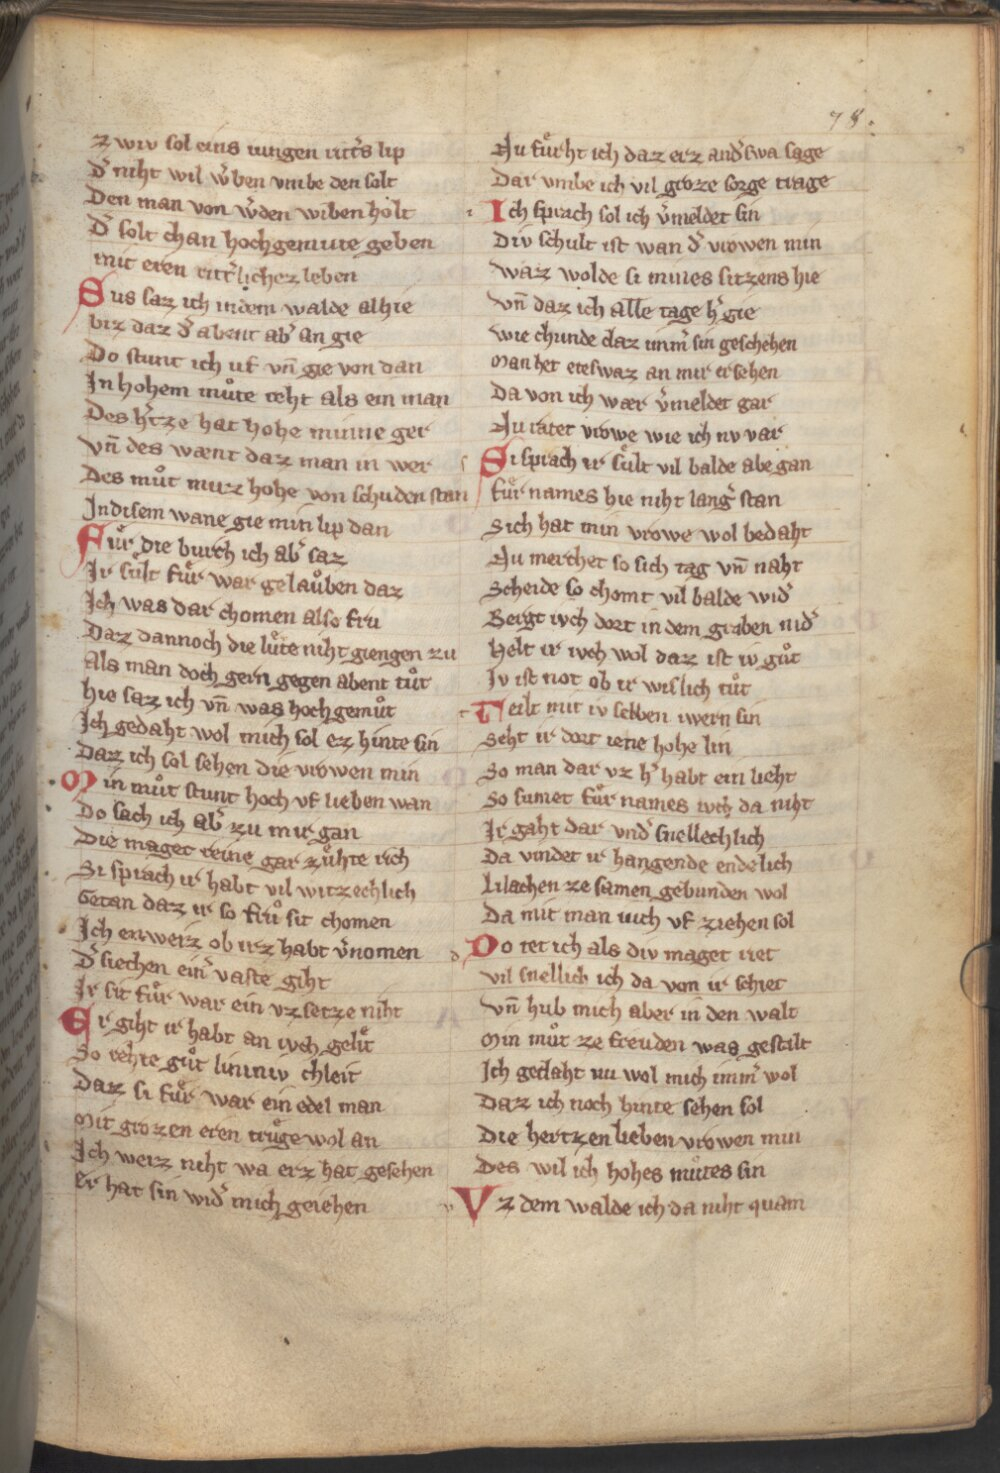 78.
z wiv sol eins iungen ritt͛s lip
d͛ niht wil w͛ben vmbe den solt
Den man von w͛den wiben holt
d͛ solt chan hochgemute geben
mit eren ritt͛lichez leben
Sus saz ich in dem walde alhie
biz daz d͛ abent ab͛ an gie
Do stunt ich uf vn̄ gie von dan
In hohem můte reht als ein man
Des h͛tze hat hohe minne ger
vn̄ des wænt daz man in wer
Des můt mvz hohe von schulden stan
In disem wane gie min lip dan
Fůr die burch ich ab͛ saz
Ir sůlt fůr war gelaůben daz
Ich was dar chomen also fru
Daz dannoch die lůte niht giengen zu
Als man doch gern gegen abent tůt
hie saz ich vn̄ was hoch gemůt
Ich gedaht wol mich sol ez hinte sin
Daz ich sol sehen die vrowen min
Min můt stunt hoch vf lieben wan
Do sach ich ab͛ zu mir gan
Die maget reine gar zůhte rich
Si sprach ir habt vil witzechlich
Getan daz ir so frů sit chomen
Ich enweiz ob irz habt v͛nomen
d͛ siechen ein͛ vaste giht
Ir sit fůr war ein vzsetze niht
Er giht ir habt an ivch geliͤt
So rehte gůt lininiv chleit
Daz si fůr war ein edel man
Mit grozen eren trůge wol an
Ich weiz niht wa erz hat gesehen
er hat sin wid͛ mich geiehen
Nu fůrht ich daz erz and͛swa sage
Dar vmbe ich vil groze sorge trage
Ich sprach sol ich v͛meldet sin
Div schult ist wan d͛ vrowen min
waz wolde si mines sitzens hie
vn̄ daz ich alle tage h͛ gie
wie chunde daz imm͛ sin geschehen
man het eteswaz an mir ersehen
Da von ich wær v͛meldet gar
Nu ratet vrowe wie ich nv var
Si sprach ir sůlt vil balde abe gan
fůr names hie niht lang͛ stan
Sich hat min vrowe wol bedaht
Nu merchet so sich tag vn̄ naht
Scheide so chomt vil balde wid͛
Bergt ivch dort in dem graben nid͛
Helt ir ivch wol daz ist iv gůt
Iv ist not ob ir wislich tůt
Teilt mit iv selben iwern sin
Seht ir dort iene hohe lin
So man dar vz h͛ habt ein lieht
So sumet fůr names ivch da niht
Ir gaht dar vnd͛ snellechlich
Da vindet ir hangende endelich
Lilachen ze samen gebunden wol
Da mit man iuch vf ziehen sol
Do tet ich als div maget riet
vil snellich ich da von ir schiet
vn̄ hub mich aber in den walt
Min můt ze freuden was gestalt
Ich gedaht nu wol mich imm͛ wol
Daz ich noch hinte sehen sol
Die hertzen lieben vrowen min
Des wil ich hohes můtes sin
Vz dem walde ich da niht quam